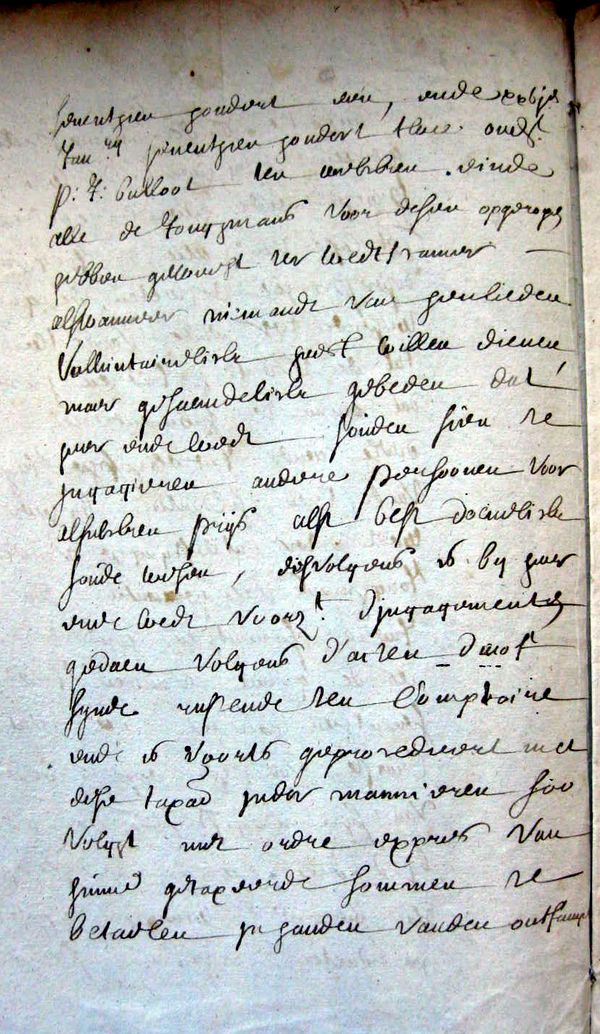 seventhien hondert een, ende xxbje
Jan.ry seventhien hondert twee onde.t
p: J: Bulloot ten welcken einde
alle de Jongmans voor desen opgeroepen
hebben geloogt ter wedtcamer —
alswanneer niemandt van henlieden
volluntairelick heeft willen dienen
maer gesaemdelick gebeden dat
heer ende wedt souden sien te
ingagieren andere persoonen voor
alsulcken prijs alst best doenelick
soude wesen, dienvolgens is by heer
ende wedt voorz.t d'ingagementen
gedaen volgens d'acten daer of
synde rustende ten Comptoire
ende is voorts geprocedeert met
dese taxad.e inder mannieren soo
volgt met ordre expres van
hunne getaxeerde sommen te
betaelen in handen vanden ontfang